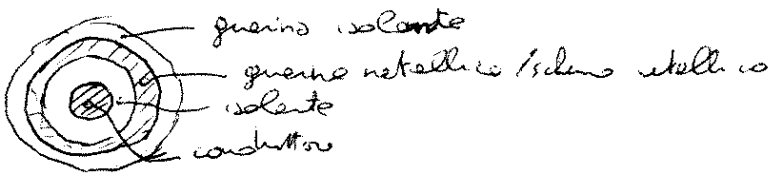 guaina isolante
guaina metallica / schermo metallico
isolante
conduttore